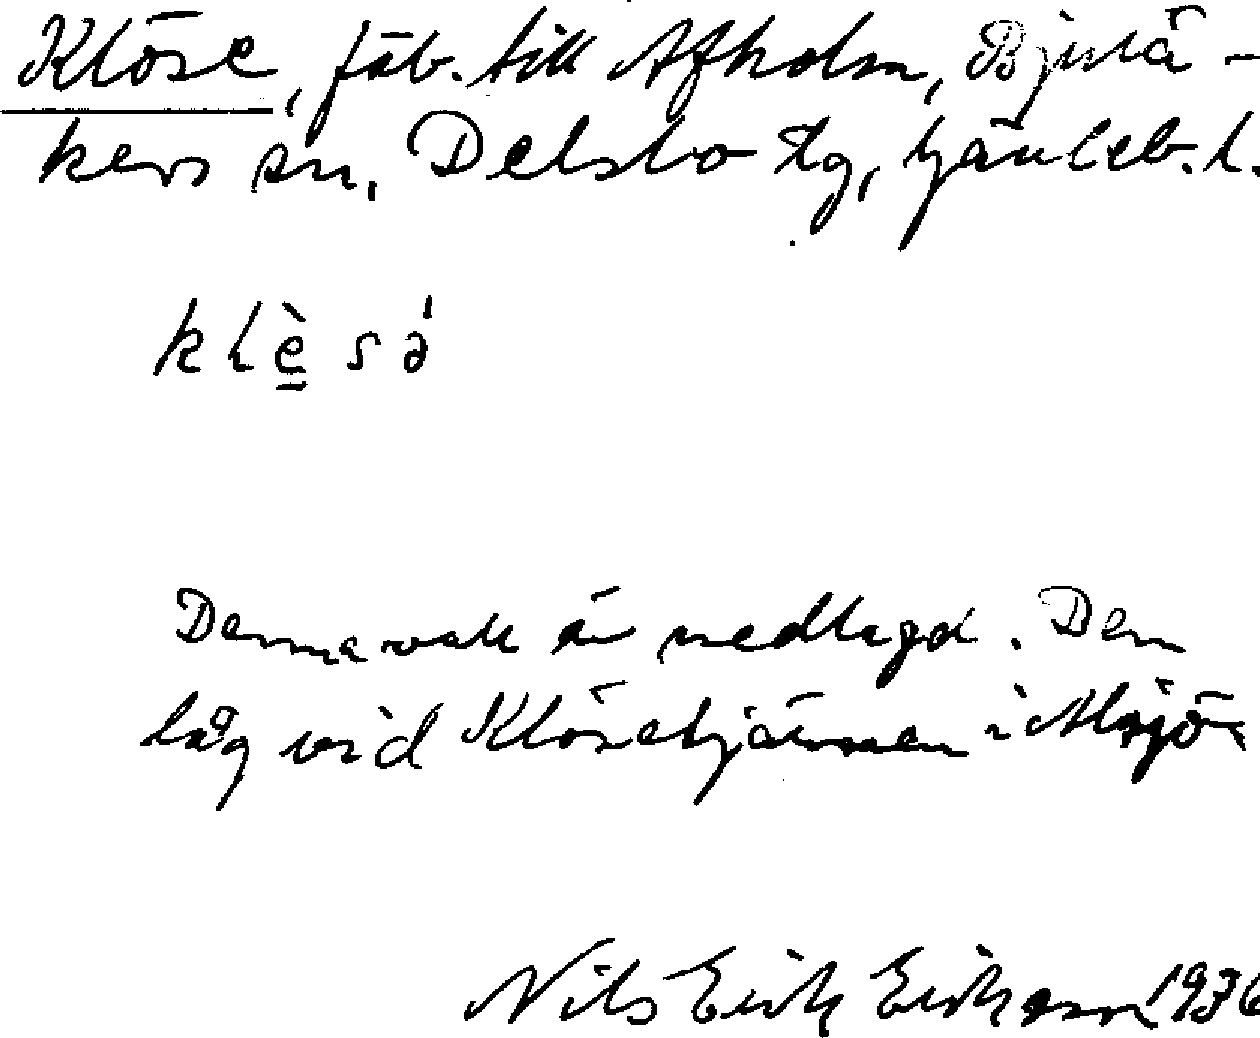 Klöse, fäb. till Afholm, Bjurå-
kers sn, Delsbo tg, Gävleb. l.
klèsə́
Denna vall är nedlagd. Den
låg vid Klösetjärnen i Alsjö-
Nils Erik Eriksson 1936